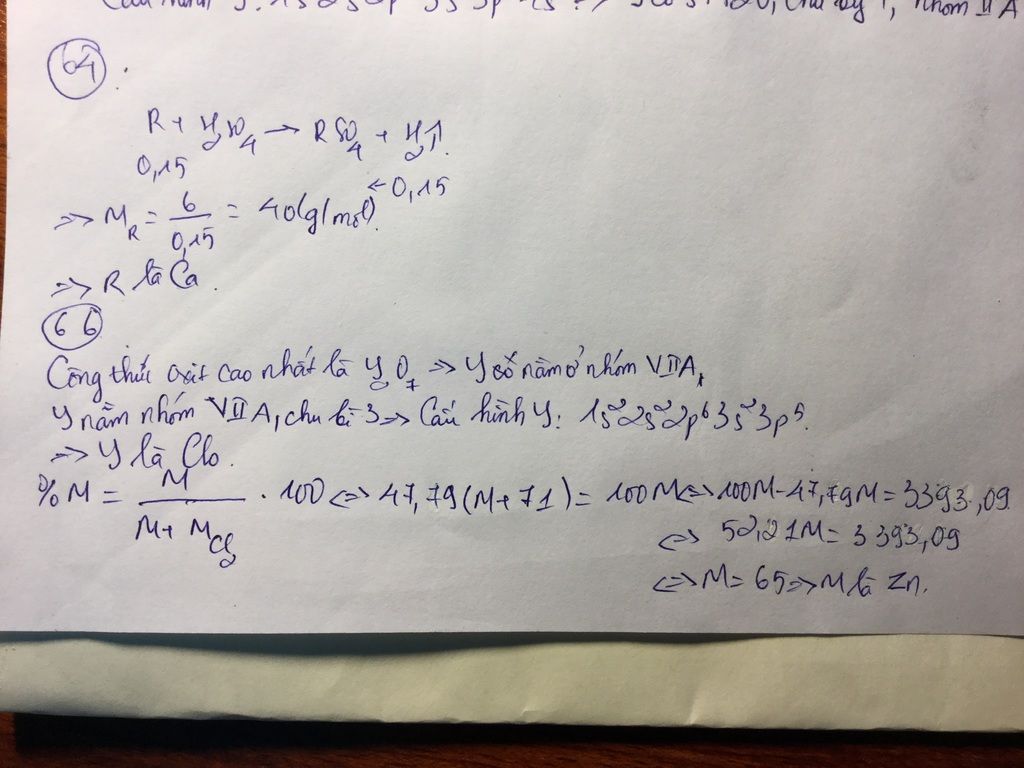 64.
R + H₂SO₄ → RSO₄ + H₂↑.
0,15 ← 0,15
=> M_R = 6/0,15 = 40(g/mol).
=> R là Ca.
66
Công thức oxit cao nhất là Y₂O₇ => Y nằm ở nhóm VIIA,
Y nằm nhóm VIIA, chu kì 3 => Cấu hình Y: 1s²2s²2p⁶3s²3p⁵.
=> Y là Clo.
%M = M/(M + M_Cl₂) . 100 <=> 47,79(M+71) = 100M <=> 100M - 47,79M = 3393,09
<=> 52,21M = 3393,09
<=> M = 65 => M là Zn.